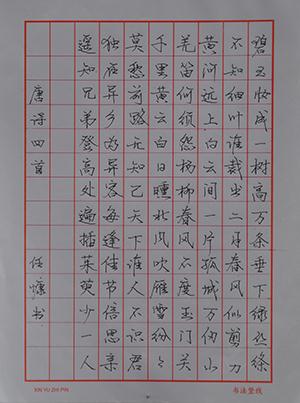 碧玉妆成一树高万条垂下绿丝绦
不知细叶谁裁出二月春风似剪刀
黄河远上白云间一片孤城万仞山
羌笛何须怨杨柳春风不度玉门关
千里黄云白日曛北风吹雁雪纷々
莫愁前路无知己天下谁人不识君
独在异乡为异客每逢佳节倍思亲
遥知兄弟登高处遍插茱萸少一人
唐诗四首 任慷书
XIN YU ZHI PIN
书法竖线